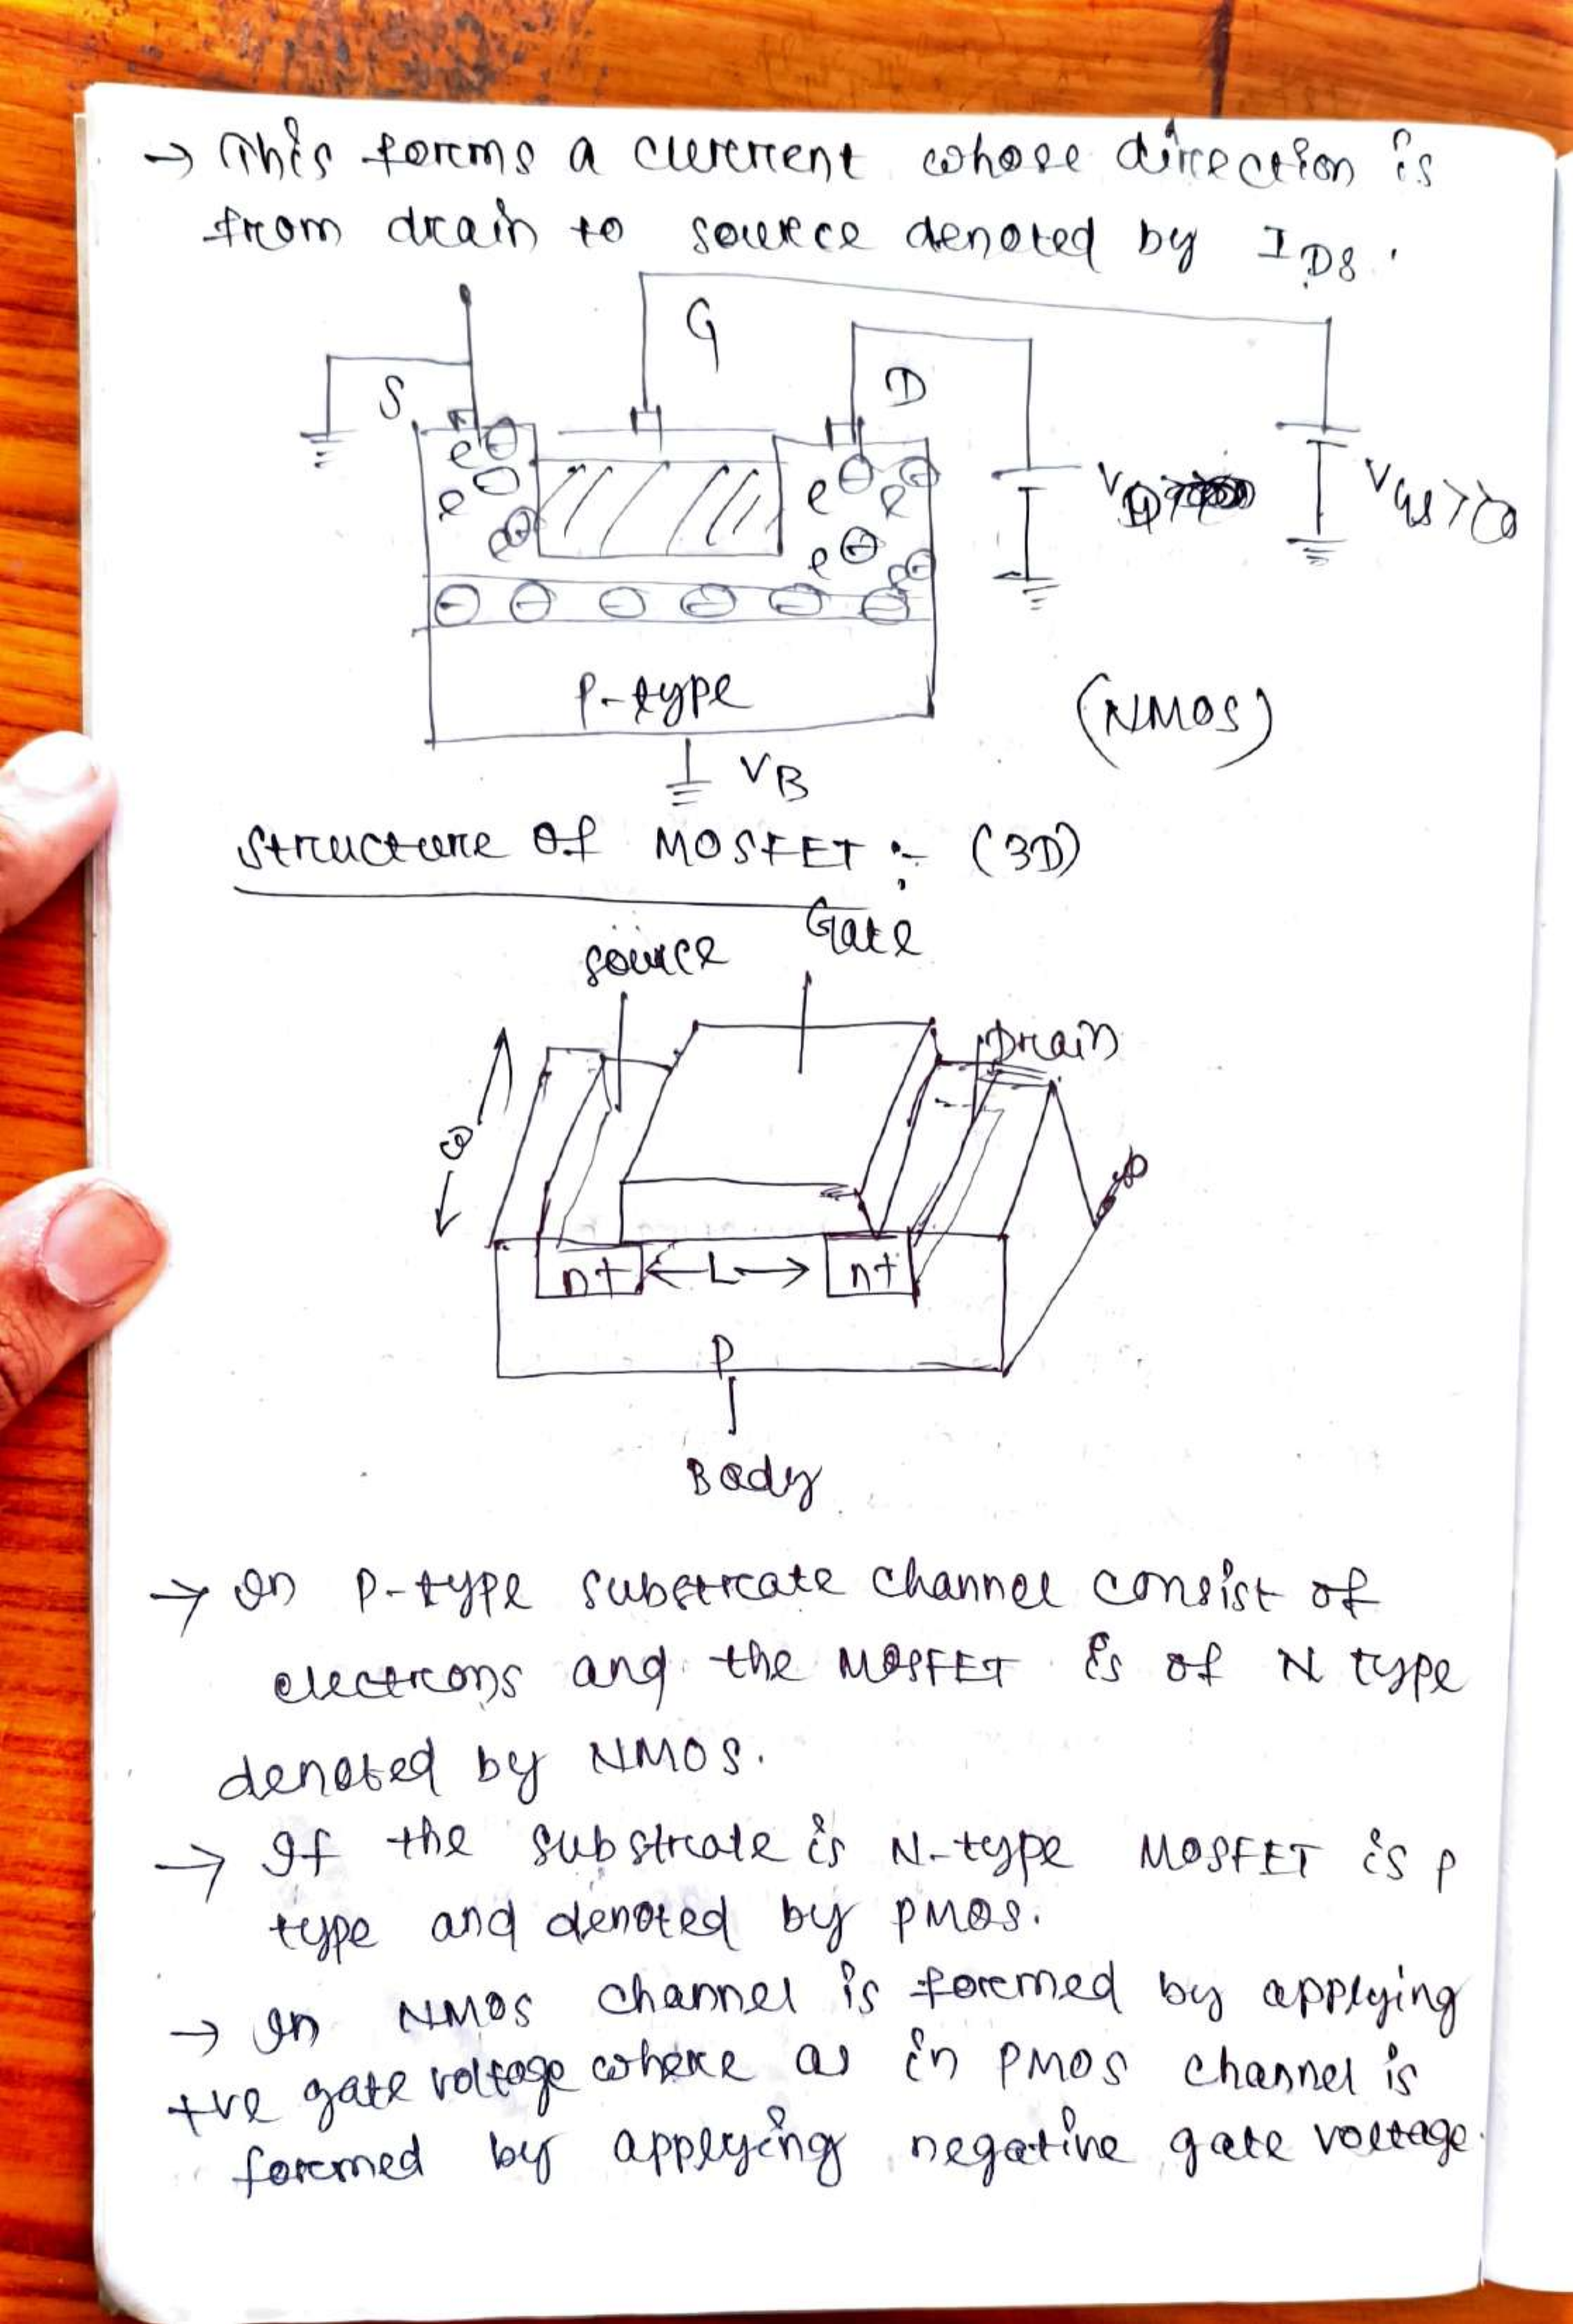 → This forms a current whose direction is
from drain to source denoted by I_DS.
G
S
D
e
e
e
e
e
e
e
V_D
V_GS>0
P-type
(NMOS)
V_B
Structure of MOSFET :- (3D)
Gate
source
Drain
ω
n+ ←L→ n+
P
Body
→ In P-type substrate channel consist of
electrons and the MOSFET is of N type
denoted by NMOS.
→ If the substrate is N-type MOSFET is p
type and denoted by PMOS.
→ In NMOS channel is formed by applying
+ve gate voltage where as in PMOS channel is
formed by applying negative gate voltage.